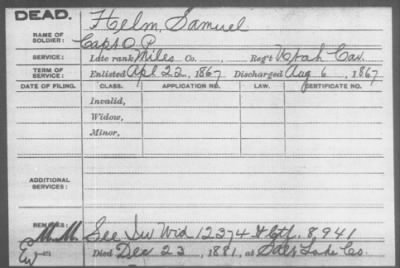 DEAD.
NAME OF SOLDIER: Helm, Samuel
Capt O. P.
SERVICE: Late rank Miles Co. Reg't Utah Cav.
TERM OF SERVICE: Enlisted Apl 22, 1867 Discharged Aug 6, 1867
DATE OF FILING. CLASS. APPLICATION NO. LAW. CERTIFICATE NO.
Invalid,
Widow,
Minor,
ADDITIONAL SERVICES:
REMARKS: See Ind Wid 12374 Ctf. 8,941
Died Dec 23, 1881, at Salt Lake Co.